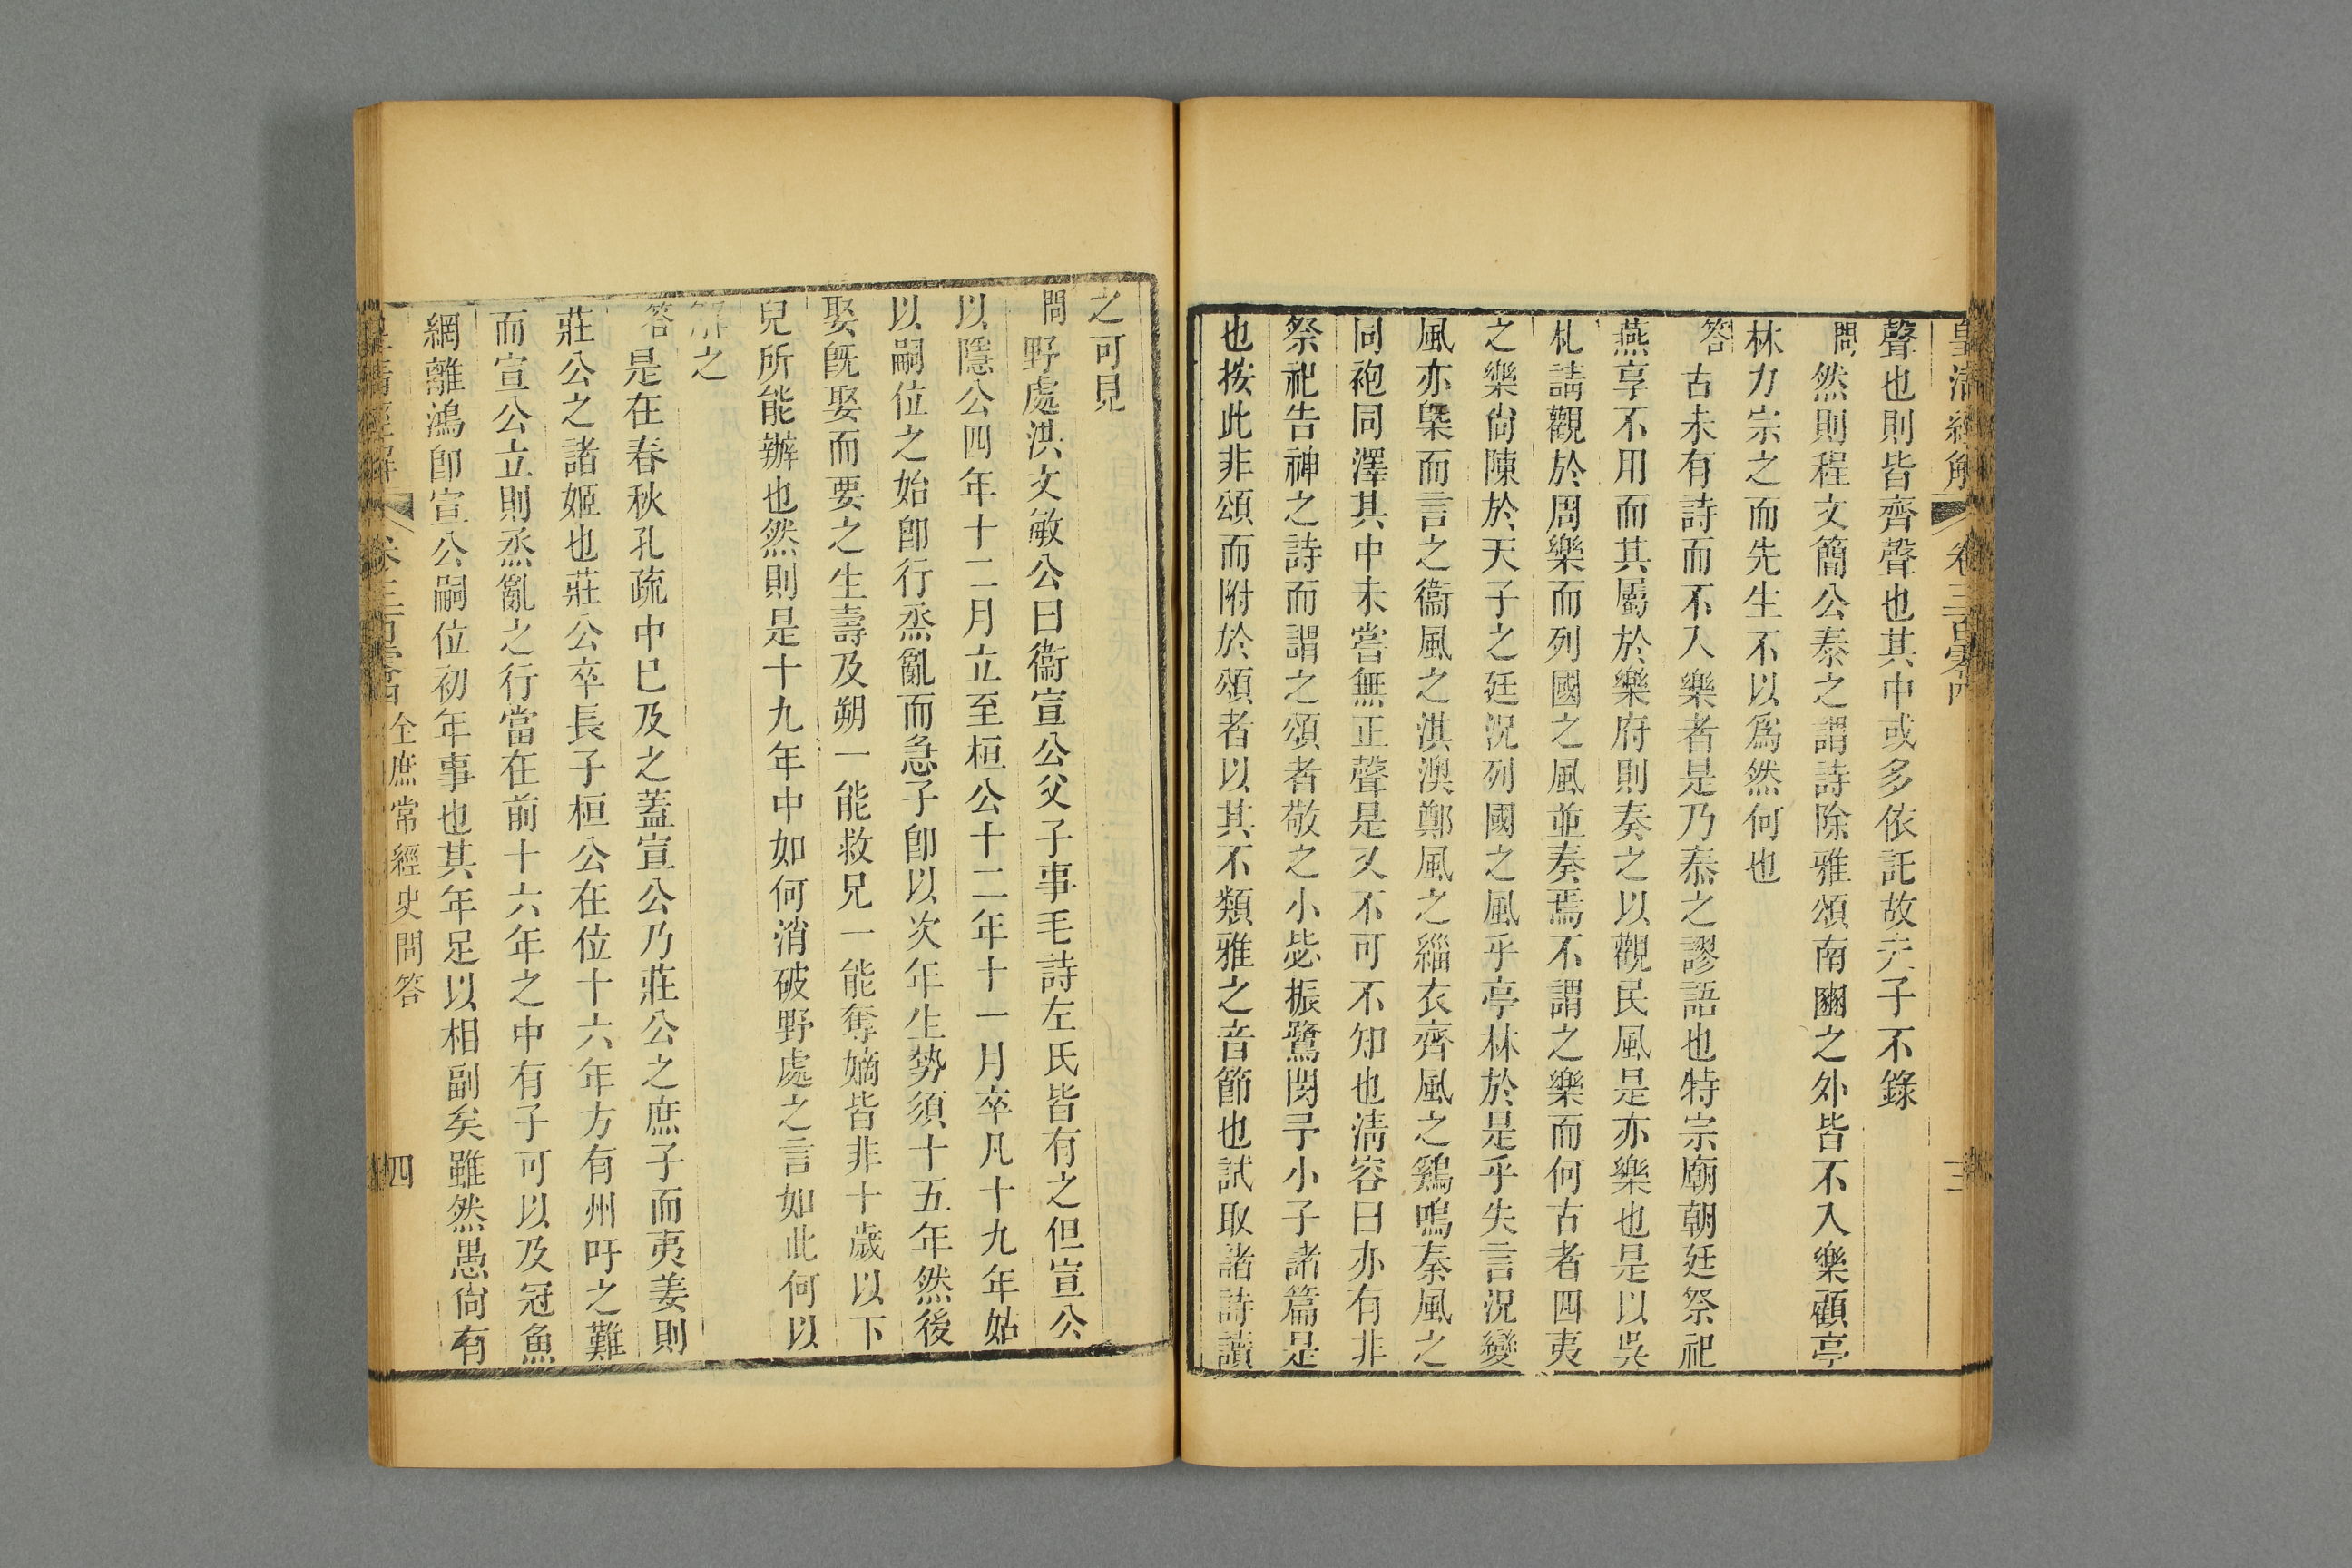 皇清經解 卷三百零四 三
聲也則皆齊聲也其中或多依託故夫子不錄
問然則程文簡公泰之謂詩除雅頌南豳之外皆不入樂顧亭
林力宗之而先生不以爲然何也
答古未有詩而不入樂者是乃泰之謬語也特宗廟朝廷祭祀
燕享不用而其屬於樂府則奏之以觀民風是亦樂也是以吳
札請觀於周樂而列國之風並奏焉不謂之樂而何古者四夷
之樂尙陳於天子之廷況列國之風乎亭林於是乎失言況變
風亦槩而言之衞風之淇澳鄭風之緇衣齊風之鷄鳴秦風之
同袍同澤其中未嘗無正聲是又不可不知也淸容曰亦有非
祭祀告神之詩而謂之頌者敬之小毖振鷺閔予小子諸篇是
也按此非頌而附於頌者以其不類雅之音節也試取諸詩讀
之可見
問野處洪文敏公曰衞宣公父子事毛詩左氏皆有之但宣公
以隱公四年十二月立至桓公十二年十一月卒凡十九年姑
以嗣位之始卽行烝亂而急子卽以次年生勢須十五年然後
娶旣娶而要之生壽及朔一能救兄一能奪嫡皆非十歲以下
兒所能辦也然則是十九年中如何消破野處之言如此何以
解之
答是在春秋孔疏中已及之蓋宣公乃莊公之庶子而夷姜則
莊公之諸姬也莊公卒長子桓公在位十六年方有州吁之難
而宣公立則烝亂之行當在前十六年之中有子可以及冠魚
網離鴻卽宣公嗣位初年事也其年足以相副矣雖然愚尙有
皇清經解 卷三百零四 全庶常經史問答 四